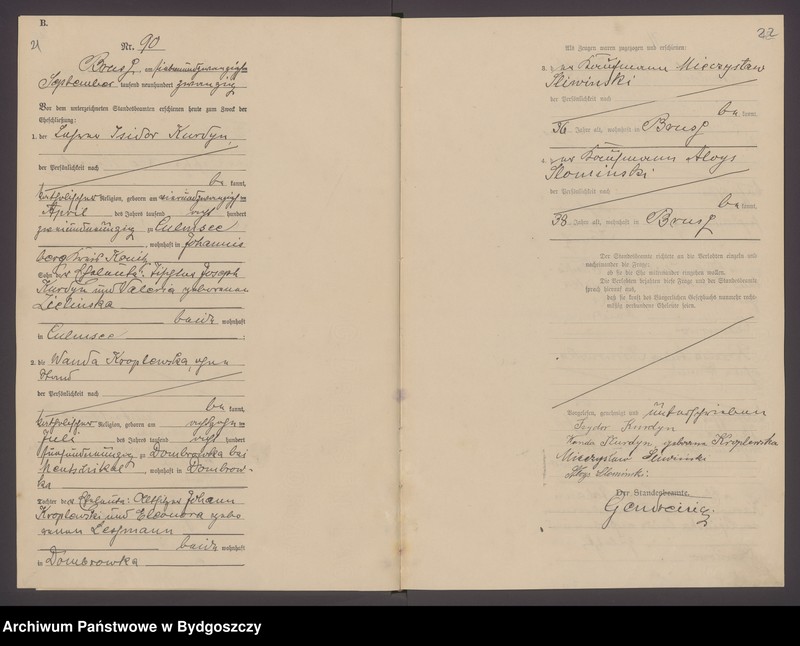 B.
21
Nr. 90
Brusß, am siebenundzwanzigsten
September tausend neunhundert zwanzig
Vor dem unterzeichneten Standesbeamten erschienen heute zum Zweck der
Eheschließung:
1. der Lehrer Isidor Kurdyn,
der Persönlichkeit nach
be kannt,
katholischer Religion, geboren am vierundzwanzigsten
April des Jahres tausend acht hundert
zweiundneunzig zu Culmsee
, wohnhaft in Johannis
berg Kreis Konitz
Sohn der Eheleute: Tischler Joseph
Kurdyn und Valeria geborenen
Zielinska
beide wohnhaft
in Culmsee ;
2. die Wanda Kroplewska, ohne
Stand
der Persönlichkeit nach
be kannt,
katholischer Religion, geboren am achtzehnten
Juli des Jahres tausend acht hundert
fünfundneunzig zu Dombrowka bei
, wohnhaft in Dombrow-
ka
Tochter der Eheleute: Altsitzer Johann
Kroplewski und Eleonora gebo
renen Lessmann
beide wohnhaft
in Dombrowka
22
Als Zeugen waren zugezogen und erschienen:
3. der Kaufmann Mieczyslaw
Sliwinski
der Persönlichkeit nach
be kannt,
36 Jahre alt, wohnhaft in Bruss
4. der Kaufmann Aloys
Slominski
der Persönlichkeit nach
be kannt,
38 Jahre alt, wohnhaft in Bruss
Der Standesbeamte richtete an die Verlobten einzeln und
nacheinander die Frage:
ob sie die Ehe miteinander eingehen wollen.
Die Verlobten bejahten diese Frage und der Standesbeamte
sprach hierauf aus,
daß sie kraft des Bürgerlichen Gesetzbuchs nunmehr recht-
mäßig verbundene Eheleute seien.
Vorgelesen, genehmigt und unterschrieben
Izydor Kurdyn
Wanda Kurdyn, geborene Kroplewska
Mieczyslaw Sliwinski
Aloys Slominski.
Der Standesbeamte.
Archiwum Państwowe w Bydgoszczy